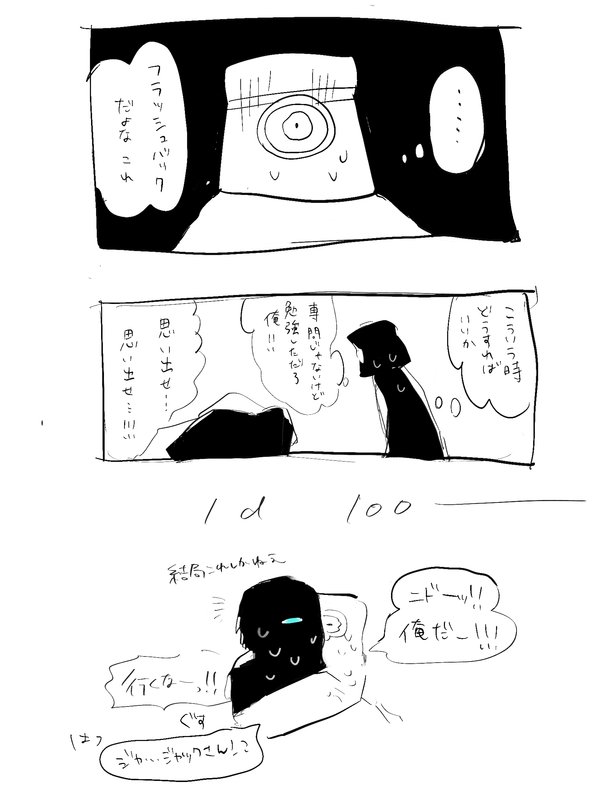 ・・・・・
フラッシュバック
だよな これ
こういう時
どうすれば
いいか
専門じゃないけど
勉強しただろ
俺!!!
思い出せ…
思い出せ…!!!
1d 100
結局これしかねえ
ニドーッ!!
俺だー!!!
行くなーっ!!
ぐす
はっ
ジャ…ジャックさん!?